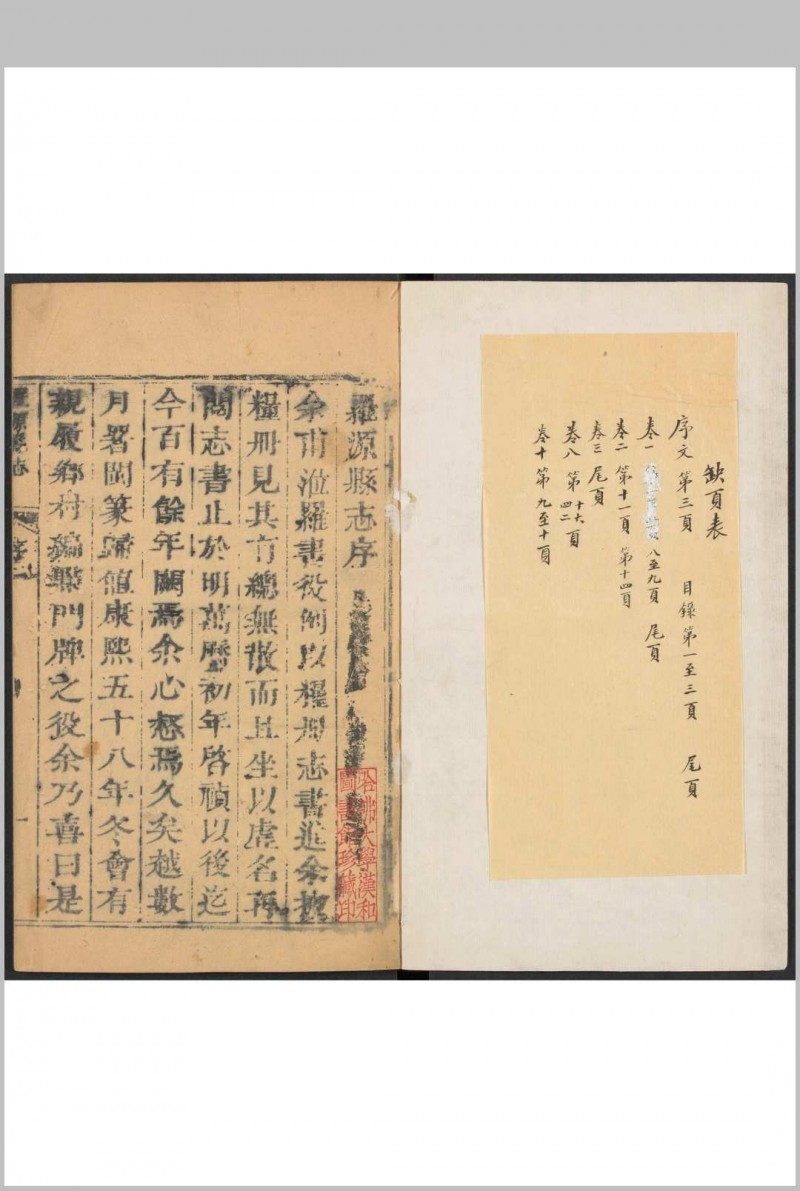 缺頁表
序文 第三頁 目錄 第一至三頁 尾頁
卷一 八至九頁 尾頁
卷二 第十一頁 第十四頁
卷三 尾頁
卷八 第十六 四二 頁
卷十 第九至十頁
羅源縣志序
余甫涖羅書役例以糧冊志書進余披
糧冊見其有總無散而且坐以虛名再
閱志書止於明萬曆初年啓禎以後迄
今百有餘年闕焉余心惄焉久矣越數
月署閩篆歸值康熙五十八年冬會有
親履鄉村編點門牌之役余乃喜曰是
羅源縣志 序 一
哈佛大學漢和
圖書館珍藏印